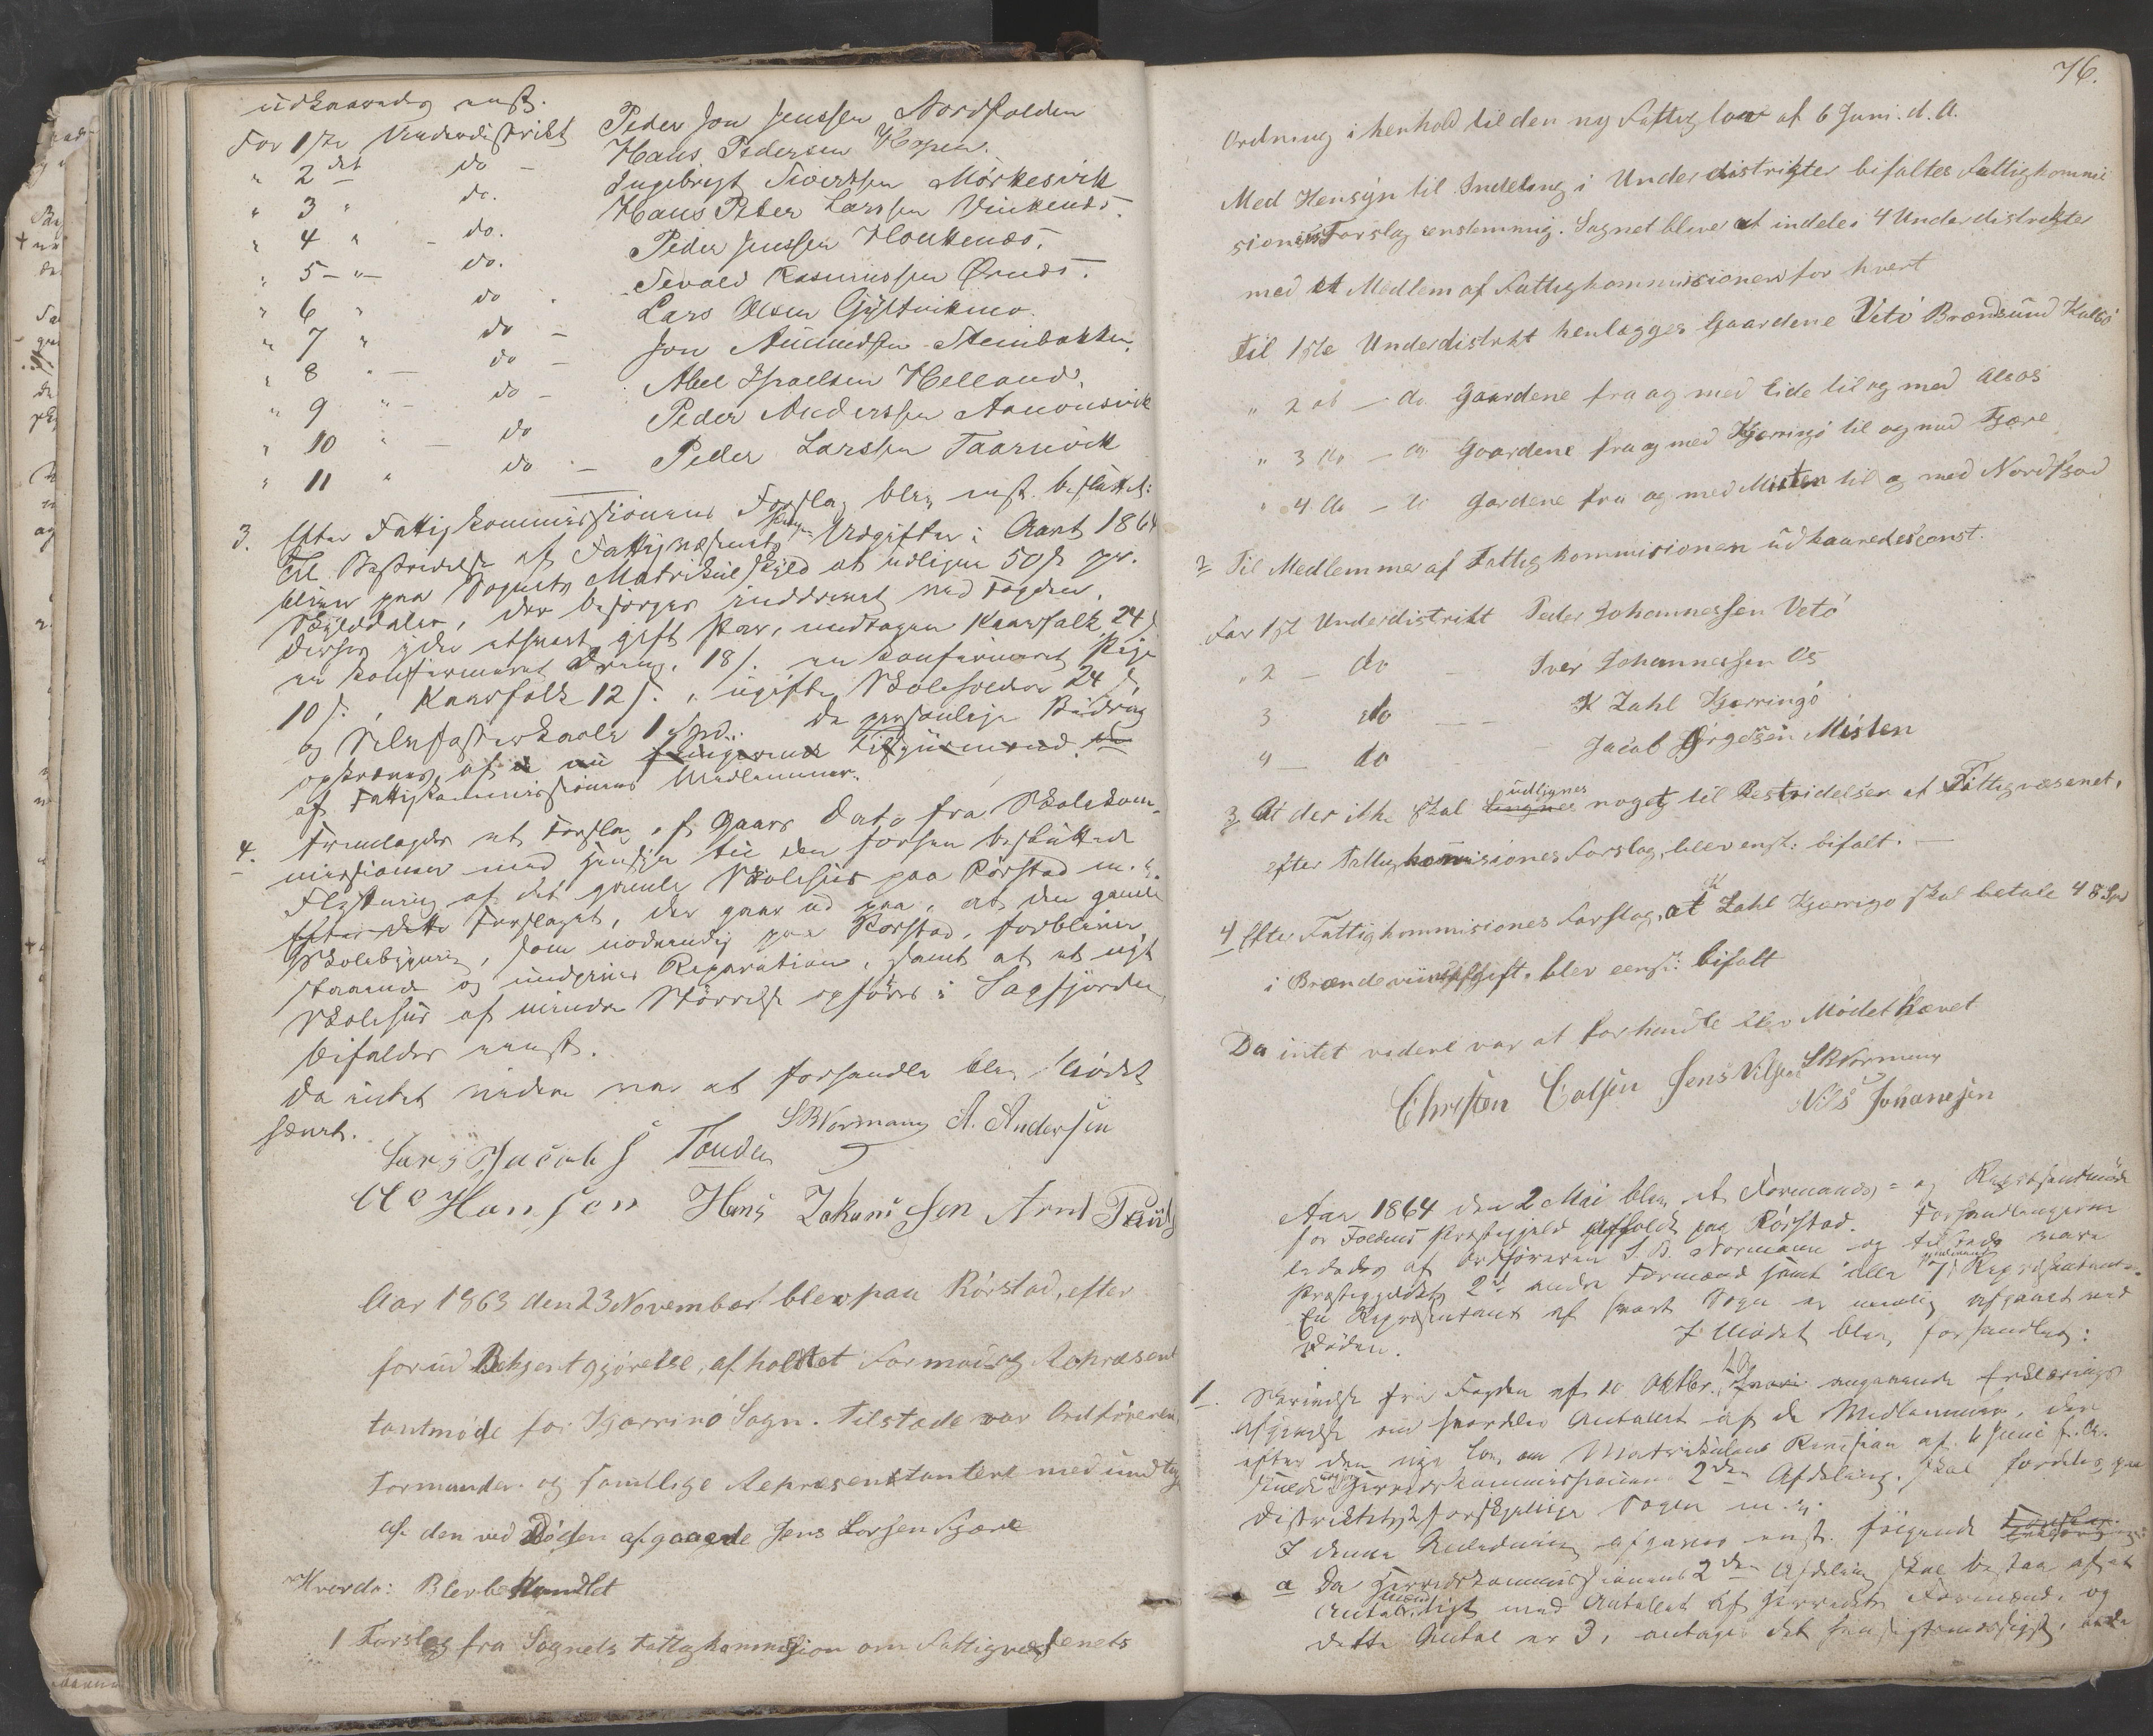 udkaaredes enst.
For 1ste Underdistrikt Peder Jon Jenssen Nordfolden
" 2det do - Hans Pedersen Kopen.
" 3 " do. Ingebrigt Sivertsen Mørkesvik
" 4 " - do. Hans Peter Larssen Vinkenes.
" 5 - " - do. Peder Jenssen Houkenæs.
" 6 " do. Sevald Rasmussen Ørnes.
" 7 " do - Lars Olsen Gyltvikmo.
" 8 " - do - Jon Amundsen Steinbakken.
" 9 " - do - Abel Israelsen Helland.
" 10 " - do Peder Anderssen Aanonsvik
" 11 " do - Peder Larssen Taarnvik
3. Efter Fattigkommissionens Forslag blev enst. besluttet:
Til Bestridelse af Fattigvæsenets Udgifter i Aaret 1864
bliver paa Sognets Matrikulskyld at udligne 50 s pr.
Skylddaler, der besørges inddrevet ved Fogden.
Derhos yder ethvert gift Par, undtagen Kaarfolk, 24 s
en konfirmeret Dreng. 18 s. en konfirmeret Pige
10 s., Kaarfolk 12 s. " ugifte Skoleholdere 24 s,
og Selvfosterkarle 1 Spd. De personlige Bidrag
opkræves af de nu fungerende Tilsynsmænd
af Fattigkommissionens Medlemmer.
4. Fremlagdes et Forslag af Gaars Dato fra Skolekom-
missionen med Hensyn til den forhen besluttede
Flytning af det gamle Skolehus paa Rørstad m. v.
Efter dette Forslaget, der gaar ud paa, at den gamle
Skolebygning, som nødvendig paa Rørstad, forbliver
staaende og undergives Reparation, samt at et nyt
Skolehus af mindre Størrelse opføres i Sagfjorden,
bifaldes enst.
Da intet videre var at forhandle blev Mødet
hævet.
SB Normann A. Andersen
Lars Jacob S Tonder
Ole Hansen Hans Zakarisen Arnt
Aar 1863 den 23 November blev paa Rørstad, efter
forud Bekjentgjørelse, afholdtet Formæ og Repræsen
tantmøde for Kjærringø Sogn. Tilstæde var Ordføreren,
Formanden og samtlige Repræsentantere med undtag
af den ved Døden afgaaede Jens Larsen Fjære
Hvorda: Blev behandlet
1 Forslag fra Sognets Fattigkommisjon om Fattigvæsenets
76.
Ordning i henhold til den ny Fattiglov af 6 Juni. d. A.
Med Hensyn til Indeling i Underdistrikter bifaltes Fattigkommi
sionens Forslag eenstemmig. Sognet bliver at indeles i 4 Underdistrikter
med et Medlem af Fattigkommisionen for hvert
Til 1ste Underdistrikt henlægges Gaardene Vetø Brændsund Kalsø
" 2 det - do Gaardene fra og med Eide til og med Alsos
" 3 do - do Gaardene fra og med Kjærringø til og med Fjære
" 4 do - do Gardene fra og med Misten til og med Nordfjord
2 Til Medlemmer af Fattigkommisionen udkaaredes eenst.
For 1ste Underdistrikt Peder Johannessen Vetø
" 2 - do - Iver Johannessen Os
3 do - - K Zahl Kjærringø
4 - do - Jacob Jørgesen Misten
3 At der ikke skal udlignes noget til Bestridelser af Fattigvæsenet,
efter Fattigkommisiones Forslag, blev enst: bifalt. -
4 Efter Fattigkommisiones Forslag, at K Zahl Kjærrigø skal betale 48 Spd
i Brændeviinsafgift, blev eenst: bifalt
Da intet videre var at forhandle blev Mødet hævet
Christen Edisen Jens Nilsen SB Normann
Nils Johanesen
Aar 1864 den 2 Mai blev et Formands- og Repræsentmøde
for Foldens Præstegjeld afholdt paa Rørstad. Forhandlingerne
lededes af Ordføreren S. B. Normann og tilstede vare
Præstegjeldets 2de andre Formænd samt alle 7 Repræsentanter.
En Repræsentant af hvert Sogn er nemlig afgaaet ved
Døden. I Mødet blev forhandlet:
1. Skrivelse fra Fogden af 10 Oktbr. angaaende Erklærings
Afgivelse om hvorledes Antallet af de Medlemmer, der
efter den nye Lov om Matrikulens Revision af 6 Juni f. A.
Herredskommissionens 2den Afdeling, skal fordeles paa
Distriktets 2 forskjellige Sogne m. v.
I denne Anledning afgaves enst. følgende
a Da Herredskommissionens 2den Afdeling skal bestaa af et
Antal Mænd ligt med Antallet af Herredets Formænd, og
dette Antal er 3, antages det hensigtsmæssigst, at de